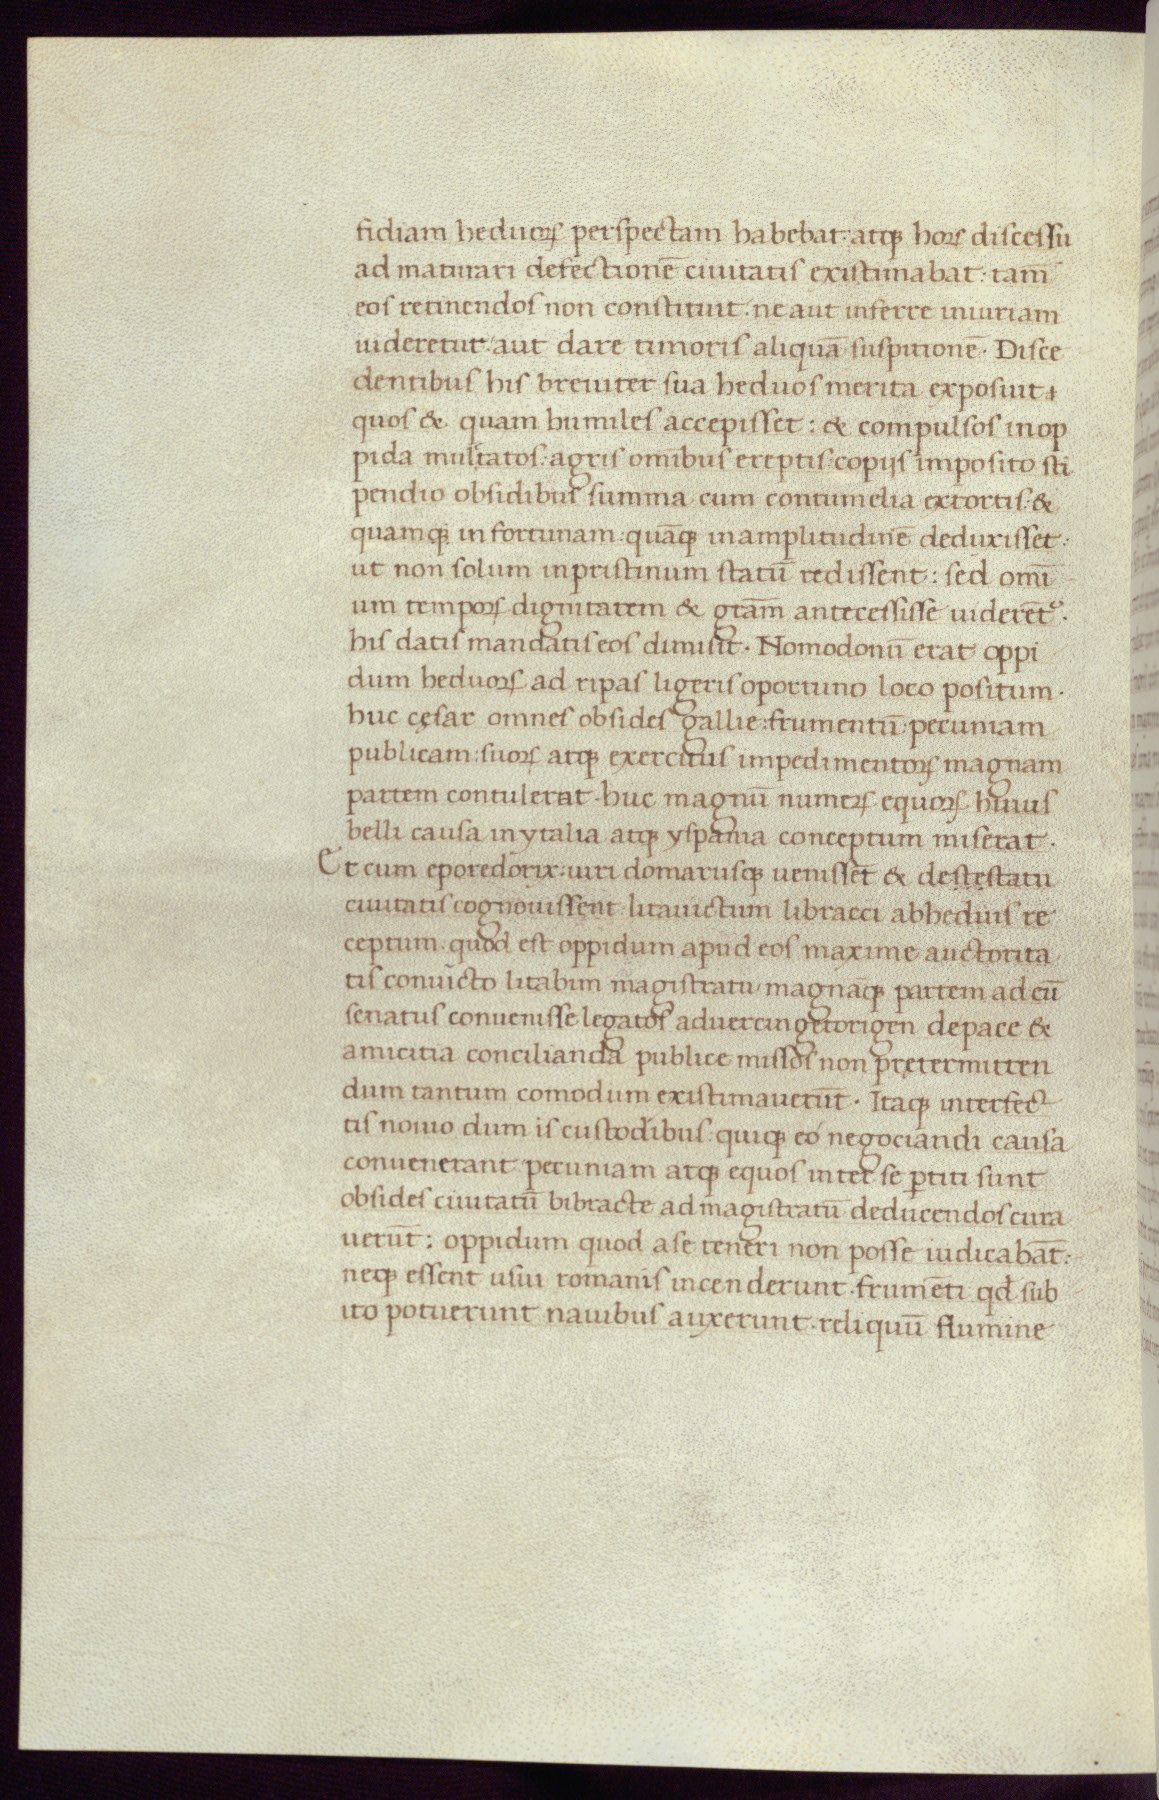 fidiam heduoꝝ perspectam habebat: atqꝫ hoꝝ discessu
ad maturari defectionē ciuitatis existimabat: tam̄
eos retinendos non constituit. ne aut inferre iniuriam
uideretur: aut dare timoris aliquā suspitionē. Disce
dentibus his breuiter sua heduos merita exposuit:
quos & quam humiles accepisset: & compulsos in op
pida multatos: agris omībus ereptis: copijs imposito sti
pendio obsidibus summa cum contumelia extortis: &
quamqꝫ in fortunam: quāqꝫ in amplitudinē deduxisset:
ut non solum in pristinum statū redissent: sed omī
um tempoꝝ dignitatem & gr̄am antecessisse uiderēt᷑.
his datis mandatis eos dimisit. Nomodonū erat oppi
dum heduoꝝ ad ripas ligeris oportuno loco positum.
huc cęsar omnes obsides gallie: frumentū: pecuniam
publicam: suoꝝ atqꝫ exercitus impedimentoꝝ magnam
partem contulerat. huc magnū numeꝝ equoꝝ huius
belli causa in ytalia atqꝫ yspania conceptum miserat.
Et cum eporedorix: uiri domarusqꝫ uenissēt & destestatu
ciuitatis cognouissent litauictum libracci ab heduis re
ceptum. quod est oppidum apud eos maxime auctorita
tis conuicto litabim magistratu magnāqꝫ partem ad eū
senatus conuenisse legatos ad uercingetorigen de pace &
amicitia concilianda publice missos non pretermitten
dum tantum comodum existimauerūt. Itaqꝫ interfec
tis nouio dum is custodibus: quiqꝫ eo negociandi causa
conuenerant pecuniam atqꝫ equos inter se ꝑtiti sunt
obsides ciuitatū bibracte ad magistratū deducendos cura
uerūt: oppidum quod a se teneri non posse iudicabāt:
neqꝫ essent usui romanis incenderunt. frumēti qđ sub
ito potuerunt nauibus auxerunt. reliquū flumine